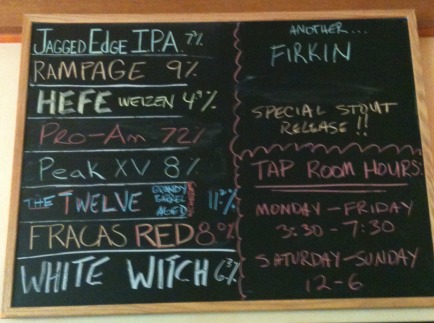 JAGGED EDGE I.P.A. 7%
RAMPAGE 9%
HEFE WEIZEN 4.9%
PRO-AM 7.2%
PEAK XV 8%
THE TWELVE BRANDY BARREL AGED 11.2%
FRACAS RED 8.0%
WHITE WITCH 6.3%
ANOTHER...
FIRKIN
SPECIAL STOUT
RELEASE!!
TAP ROOM HOURS:
MONDAY-FRIDAY
3:30-7:30
SATURDAY-SUNDAY
12-6